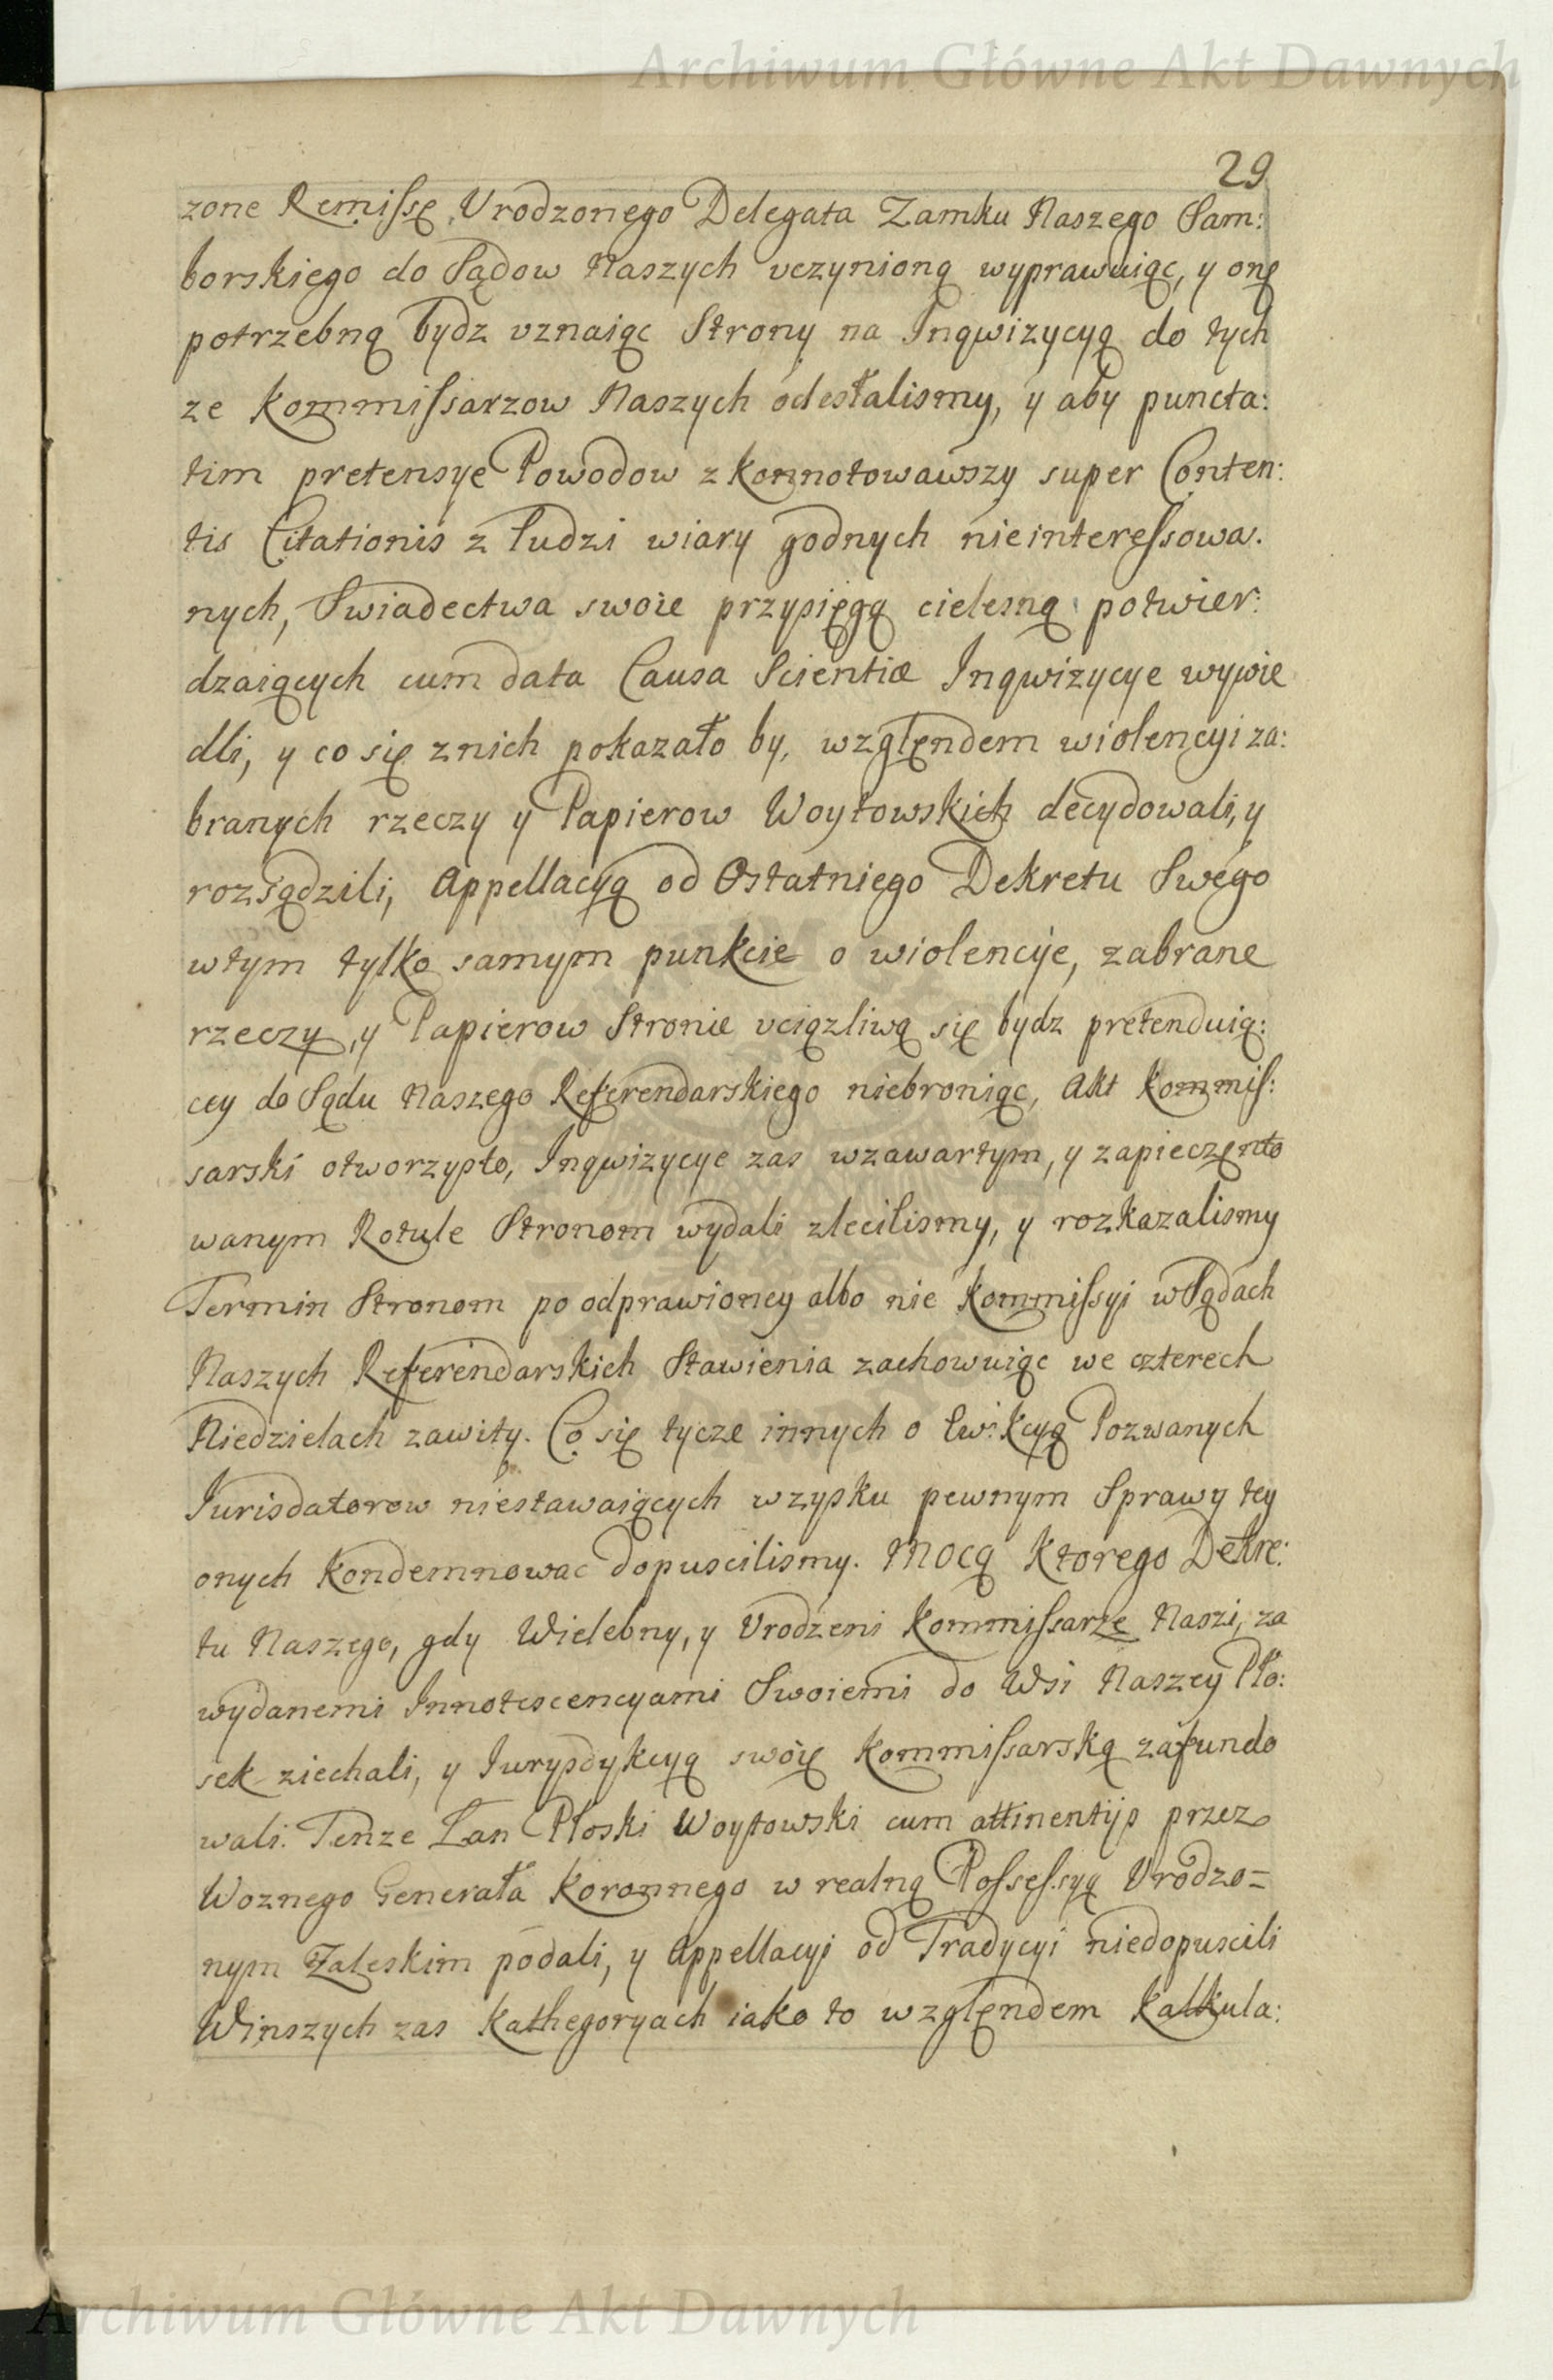 Archiwum Główne Akt Dawnych
29
zone Remissę Vrodzonego Delegata Zamku Naszego Sam:
borskiego do Sądow Naszych vczynioną wyprawuiąc, y onę
potrzebną bydz vznaiąc Strony na Inqwizycyą do tych
ze Kommissarzow Naszych odestalismy, y aby puncta:
tim pretensye Powodow z konnotowawszy super Conten:
tis Citationis z ludzi wiary godnych nieinteressowa.
nych, Swiadectwa swoie przysięgą cielesną potwier:
dzaiących cum data Causa Scientiæ Inqwizycye wywie
dli, y co się znich pokazało by, względem wiolencyi za:
branych rzeczy y Papierow Woytowskich decydowali, y
rozsądzili, Appellacyą od Ostatniego Dekretu Swego
wtym tylko samym punkcie o wiolencye, zabrane
rzeczy, y Papierow Stronie vciązliwą się bydz pretenduią:
cey do Sądu Naszego Referendarskiego niebroniąc, Akt Kommis:
sarski otworzysto, Inqwizycye zas wzawartym, y zapieczęnto
wanym Rotule Stronom wydali zlecilismy, y rozkazalismy
Termin Stronom po odprawioney albo nie Kommissyi wSądach
Naszych Referendarskich Stawienia zachowuiąc we czterech
Niedzielach zawity. Co się tycze innych o Ewikcyą Pozwanych
Iurisdatorow niestawaiących wzysku pewnym Sprawy tey
onych Kondemnowac dopuscilismy. Mocą Ktorego Dekre:
tu Naszego, gdy Wielebny, y Vrodzeni Kommissarze Naszi, za
wydanemi Innotescencyami Swoiemi do Wsi Naszey Pło:
sek ziechali, y Iurysdykcyą swoię Kommissarską zafundo
wali. Tenze Łan Płoski Woytowski cum attinentijs przez
Woznego Generała Koronnego w realną Possessyą Vrodzo=
nym Zaleskim podali, y Appellacyi od Tradycyi niedopuscili
Winszych zas Kathegoryach iako to względem Kalkula:
Archiwum Główne Akt Dawnych